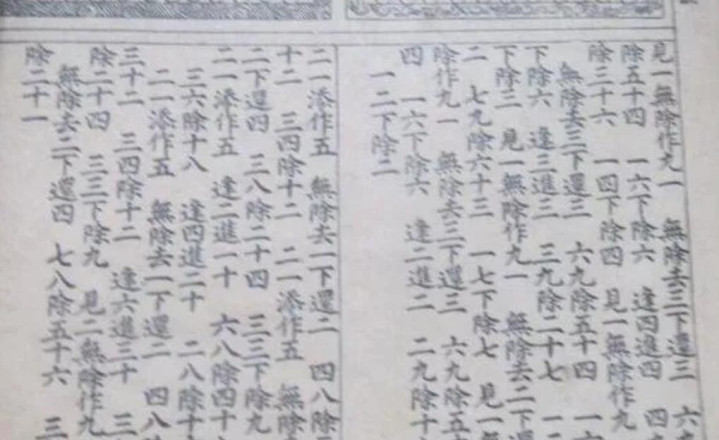 見一無除作九一　無除去三下還三　六
除五十四　一六下除六　逢四進四　四
除三十六　一四下除四　見一無除作九
無除去三下還三　六九除五十四　一
下除六　逢三進三　三九除二十七　一
下除二　見一無除作九一　無除去二下還
二　七九除六十三　一七下除七　見一
除作九一　無除去三下還三　六九除五
四　一六下除六　逢二進二　二九除十
一二下除二
二一添作五　無除去一下還二　四八除三
十二　三四除十二　二一添作五　無除
二下還四　三八除二十四　三三下除九
二一添作五　逢二進一十　六八除四十
三六除十八　逢四進二十　二八除十
二一添作五　無除去一下還二　四八
三十二　三四除十二　逢六進三十　三
除二十四　三三下除九　見二無除作九
無除去二下還四　七八除五十六　三
除二十一